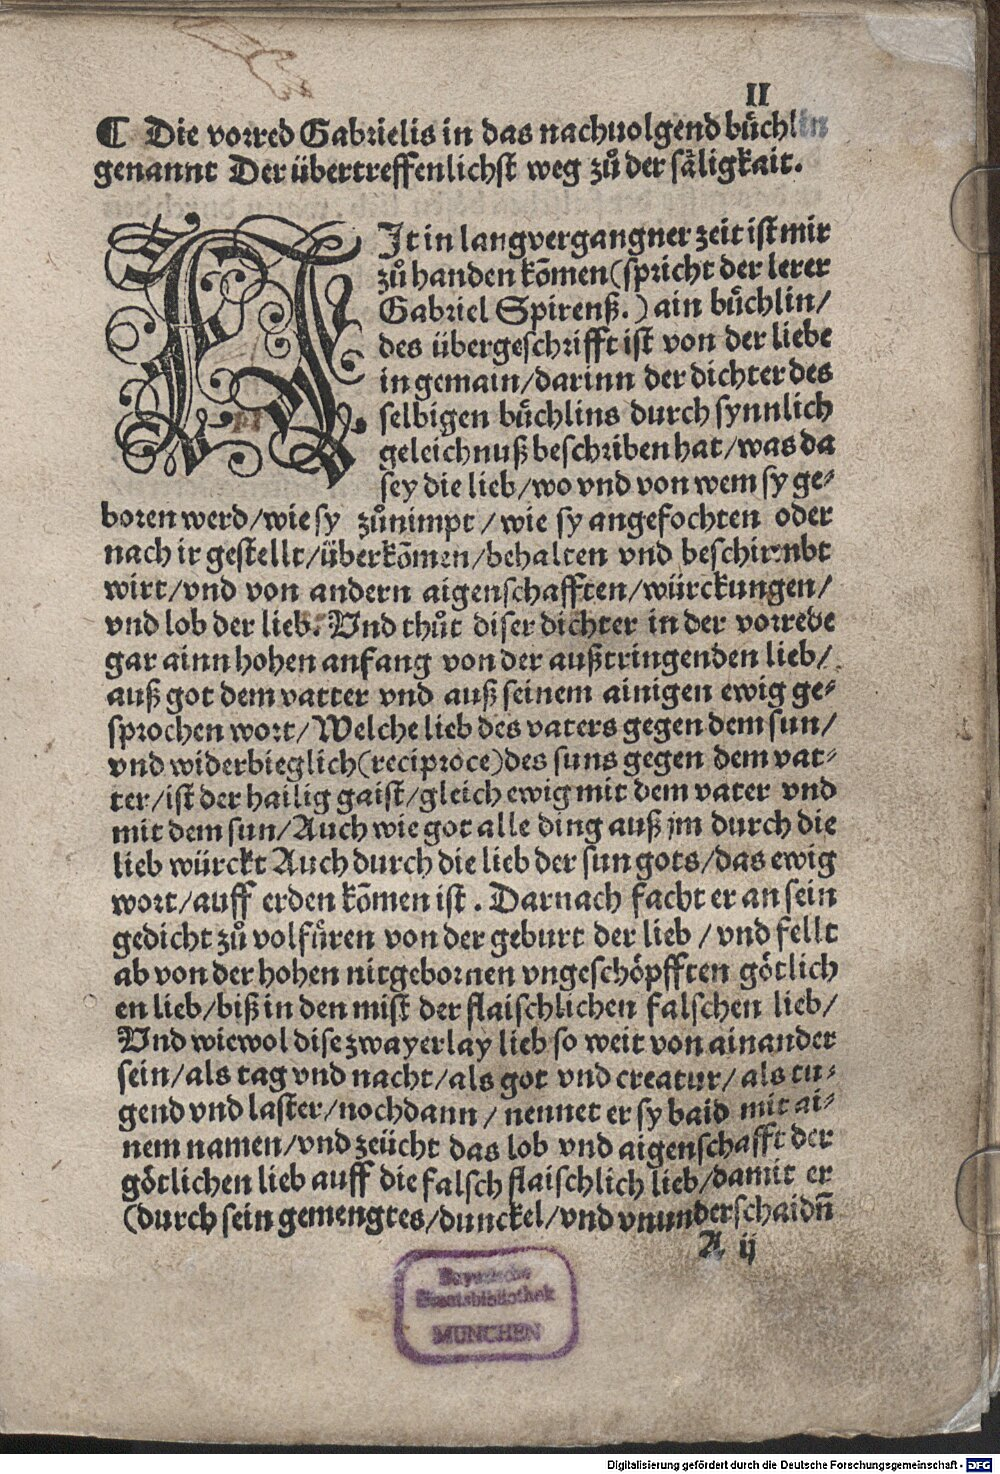 II
¶ Die vorred Gabrielis in das nachuolgend bůchlin
genannt Der übertreffenlichst weg zů der säligkait.
NIt in langvergangner zeit ist mir
zů handen kōmen (spricht der lerer
Gabriel Spirenß.) ain bůchlin/
des übergeschrifft ist von der liebe
in gemain/darinn der dichter des
selbigen bůchlins durch synnlich
geleichnuß beschriben hat/was da
sey die lieb/wo vnd von wem sy ge-
boren werd/wie sy zůnimpt/wie sy angefochten oder
nach ir gestellt/überkōmen/behalten vnd beschirmbt
wirt/vnd von andern aigenschafften/würckungen/
vnd lob der lieb. Vnd thůt diser dichter in der vorrede
gar ainn hohen anfang von der außtringenden lieb/
auß got dem vatter vnd auß seinem ainigen ewig ge-
sprochen wort/Welche lieb des vaters gegen dem sun/
vnd widerbieglich (reciproce) des suns gegen dem vat-
ter/ist der hailig gaist/gleich ewig mit dem vater vnd
mit dem sun/Auch wie got alle ding auß jm durch die
lieb würckt Auch durch die lieb der sun gots/das ewig
wort/auff erden kōmen ist. Darnach facht er an sein
gedicht zů volfůren von der geburt der lieb/vnd fellt
ab von der hohen nitgebornen vngeschöpfften götlich
en lieb/biß in den mist der flaischlichen falschen lieb/
Vnd wiewol dise zwayerlay lieb so weit von ainander
sein/als tag vnd nacht/als got vnd creatur/als tu-
gend vnd laster/nochdann/nennet er sy baid mit ai-
nem namen/vnd zeücht das lob vnd aigenschafft der
götlichen lieb auff die falsch flaischlich lieb/damit er
(durch sein gemengtes/dunckel/vnd vnunderschaidn̄
A ij
Bayerische
Staatsbibliothek
MÜNCHEN
Digitalisierung gefördert durch die Deutsche Forschungsgemeinschaft - DFG